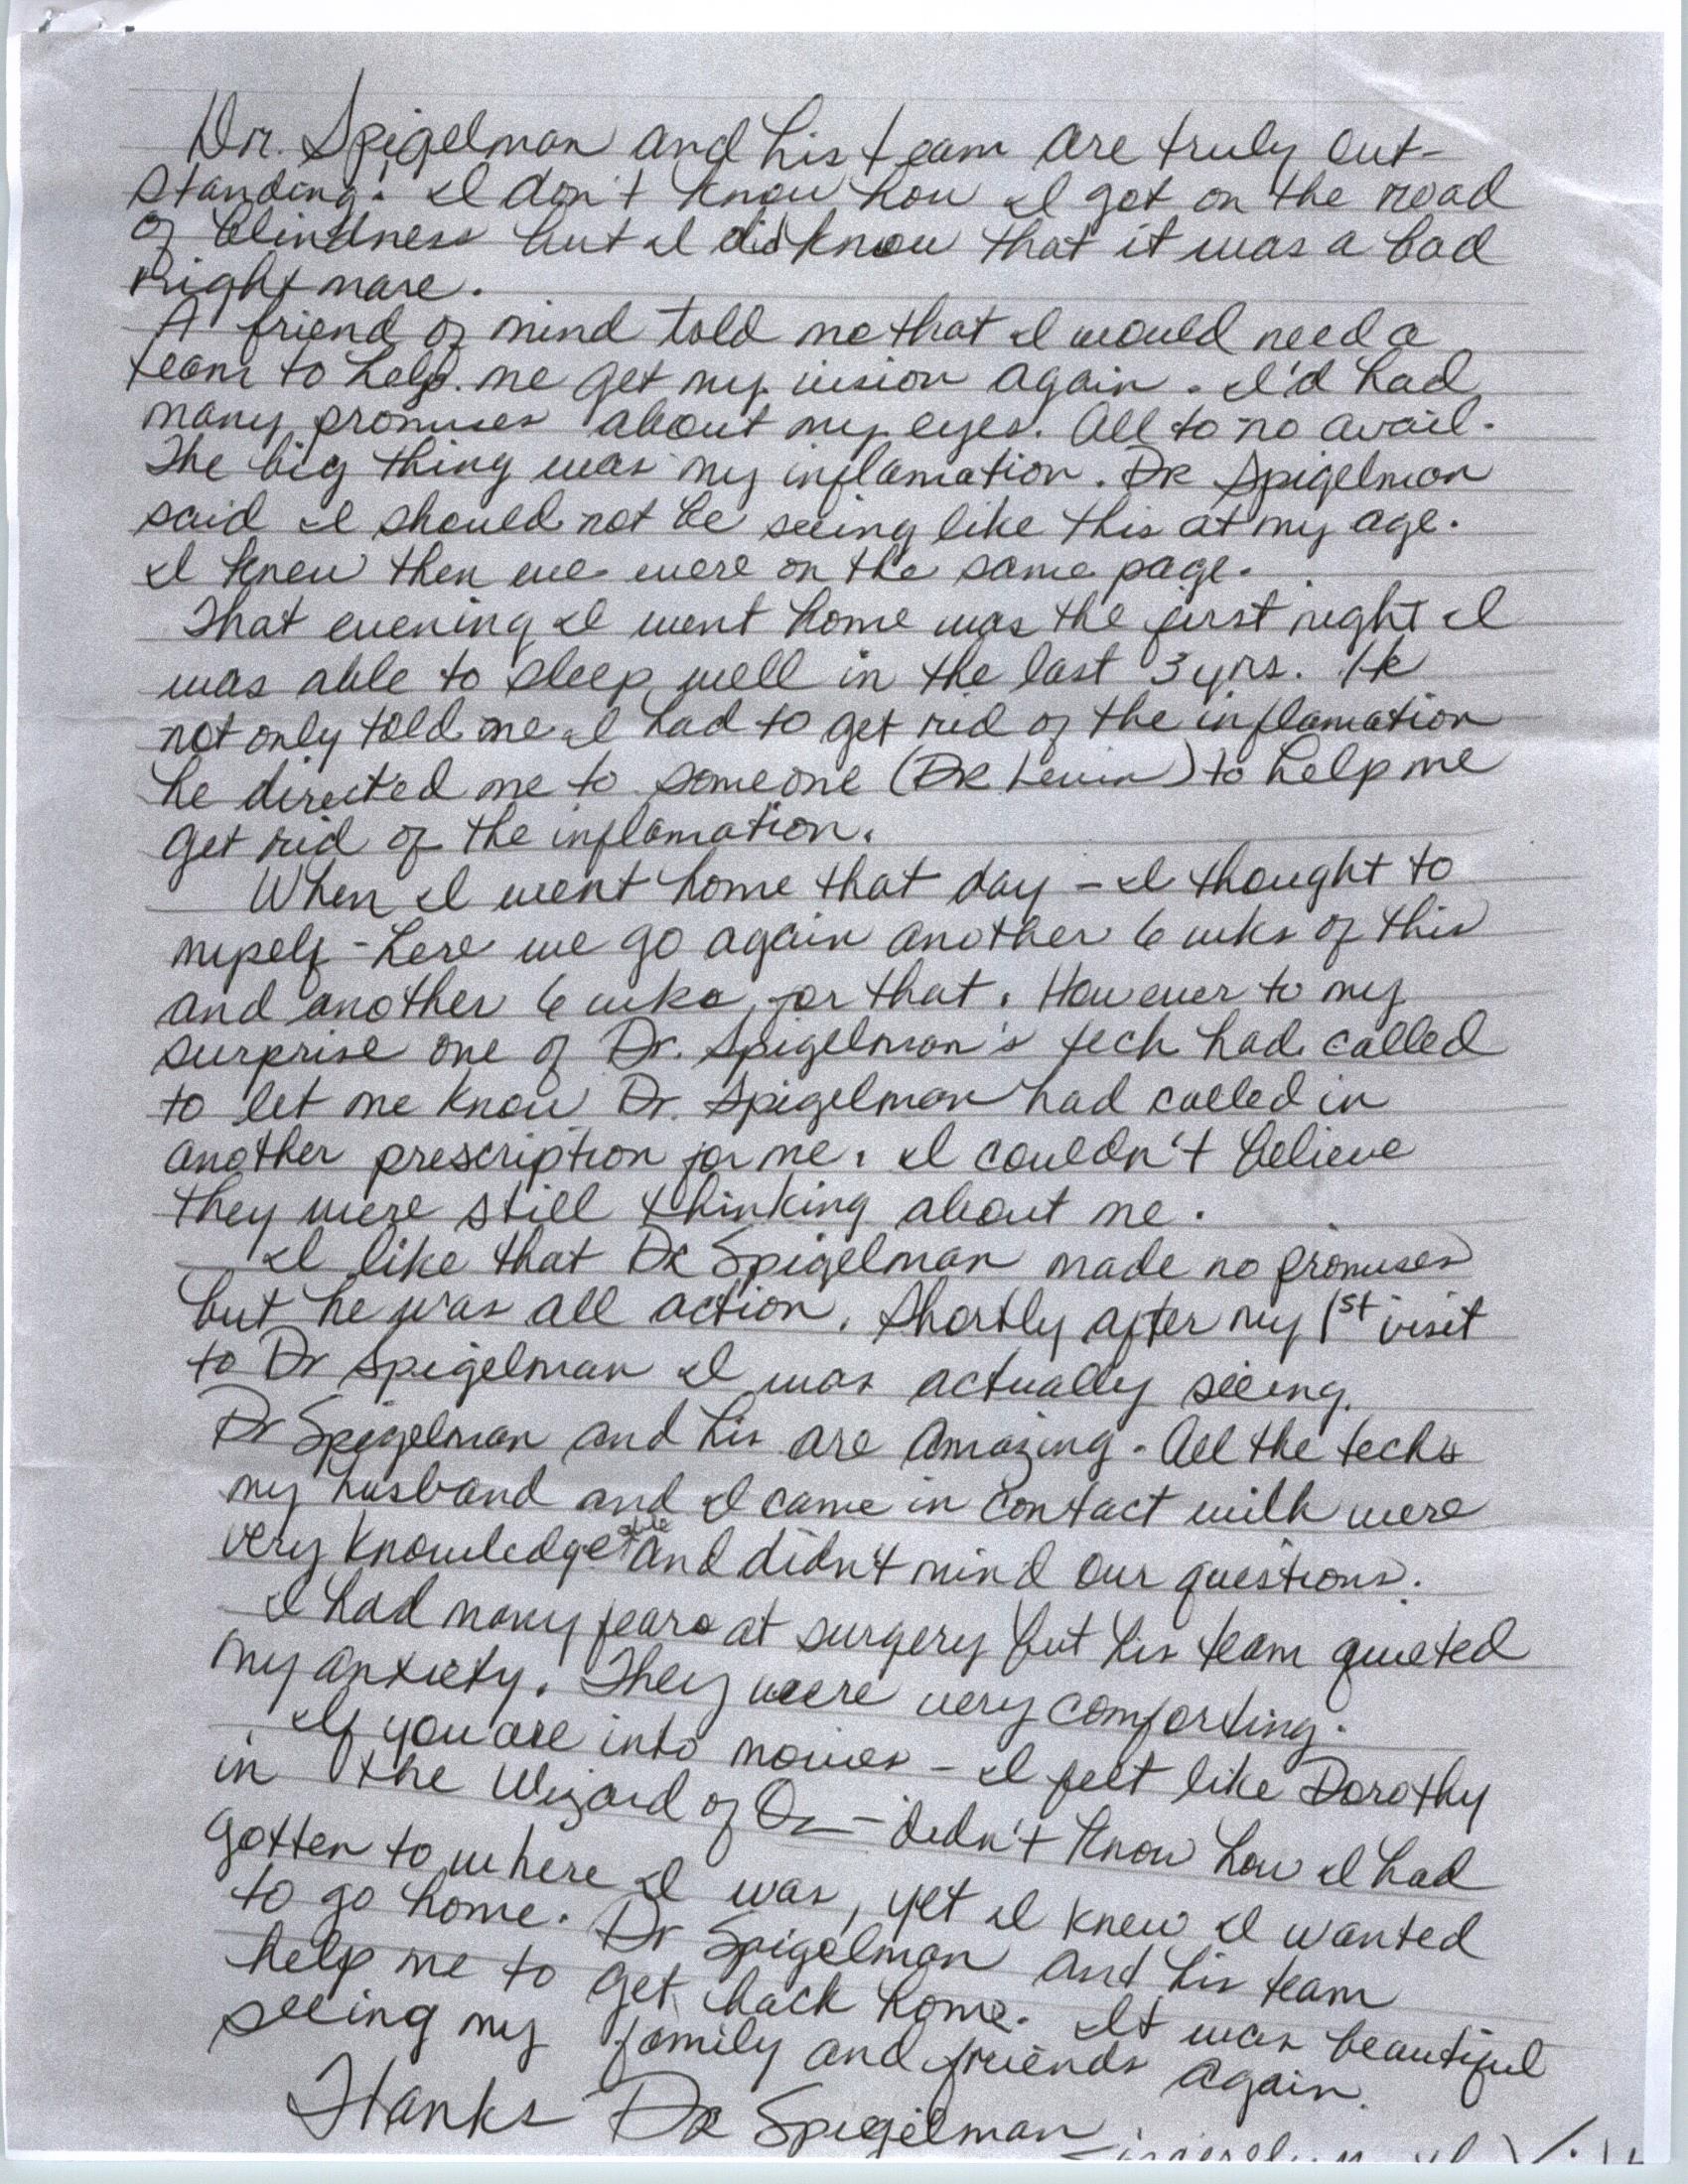 Dr. Spigelman and his team are truly out-
standing. I don't know how I got on the road
of blindness but I did know that it was a bad
nightmare.
A friend of mind told me that I would need a
team to help me get my vision again. I'd had
many promises about my eyes. All to no avail.
The big thing was my inflamation. Dr Spigelman
said I should not be seeing like this at my age.
I knew then we were on the same page.
That evening I went home was the first night I
was able to sleep well in the last 3 yrs. He
not only told me I had to get rid of the inflamation
he directed me to someone (DR Levin) to help me
get rid of the inflamation.
When I went home that day - I thought to
myself - here we go again another 6 wks of this
and another 6 wks for that. However to my
surprise one of Dr. Spigelman's tech had called
to let me know Dr. Spigelman had called in
another prescription for me. I couldn't believe
they were still thinking about me.
I like that Dr Spigelman made no promises
but he was all action. Shortly after my 1st visit
to Dr Spigelman I was actually seeing.
Dr Spigelman and his are amazing. All the techs
my husband and I came in contact with were
very knowledgeable and didn't mind our questions.
I had many fears at surgery but his team quieted
my anxiety. They were very comforting.
If you are into movies - I felt like Dorothy
in the Wizard of Oz - didn't know how I had
gotten to where I was, yet I knew I wanted
to go home. Dr Spigelman and his team
help me to get back home. It was beautiful
seeing my family and friends again.
Thanks Dr Spigelman